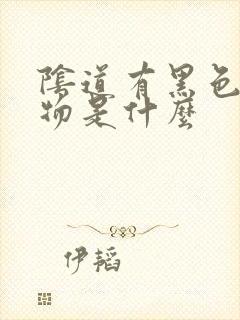 陰道有黑色
物是什麼
伊韬